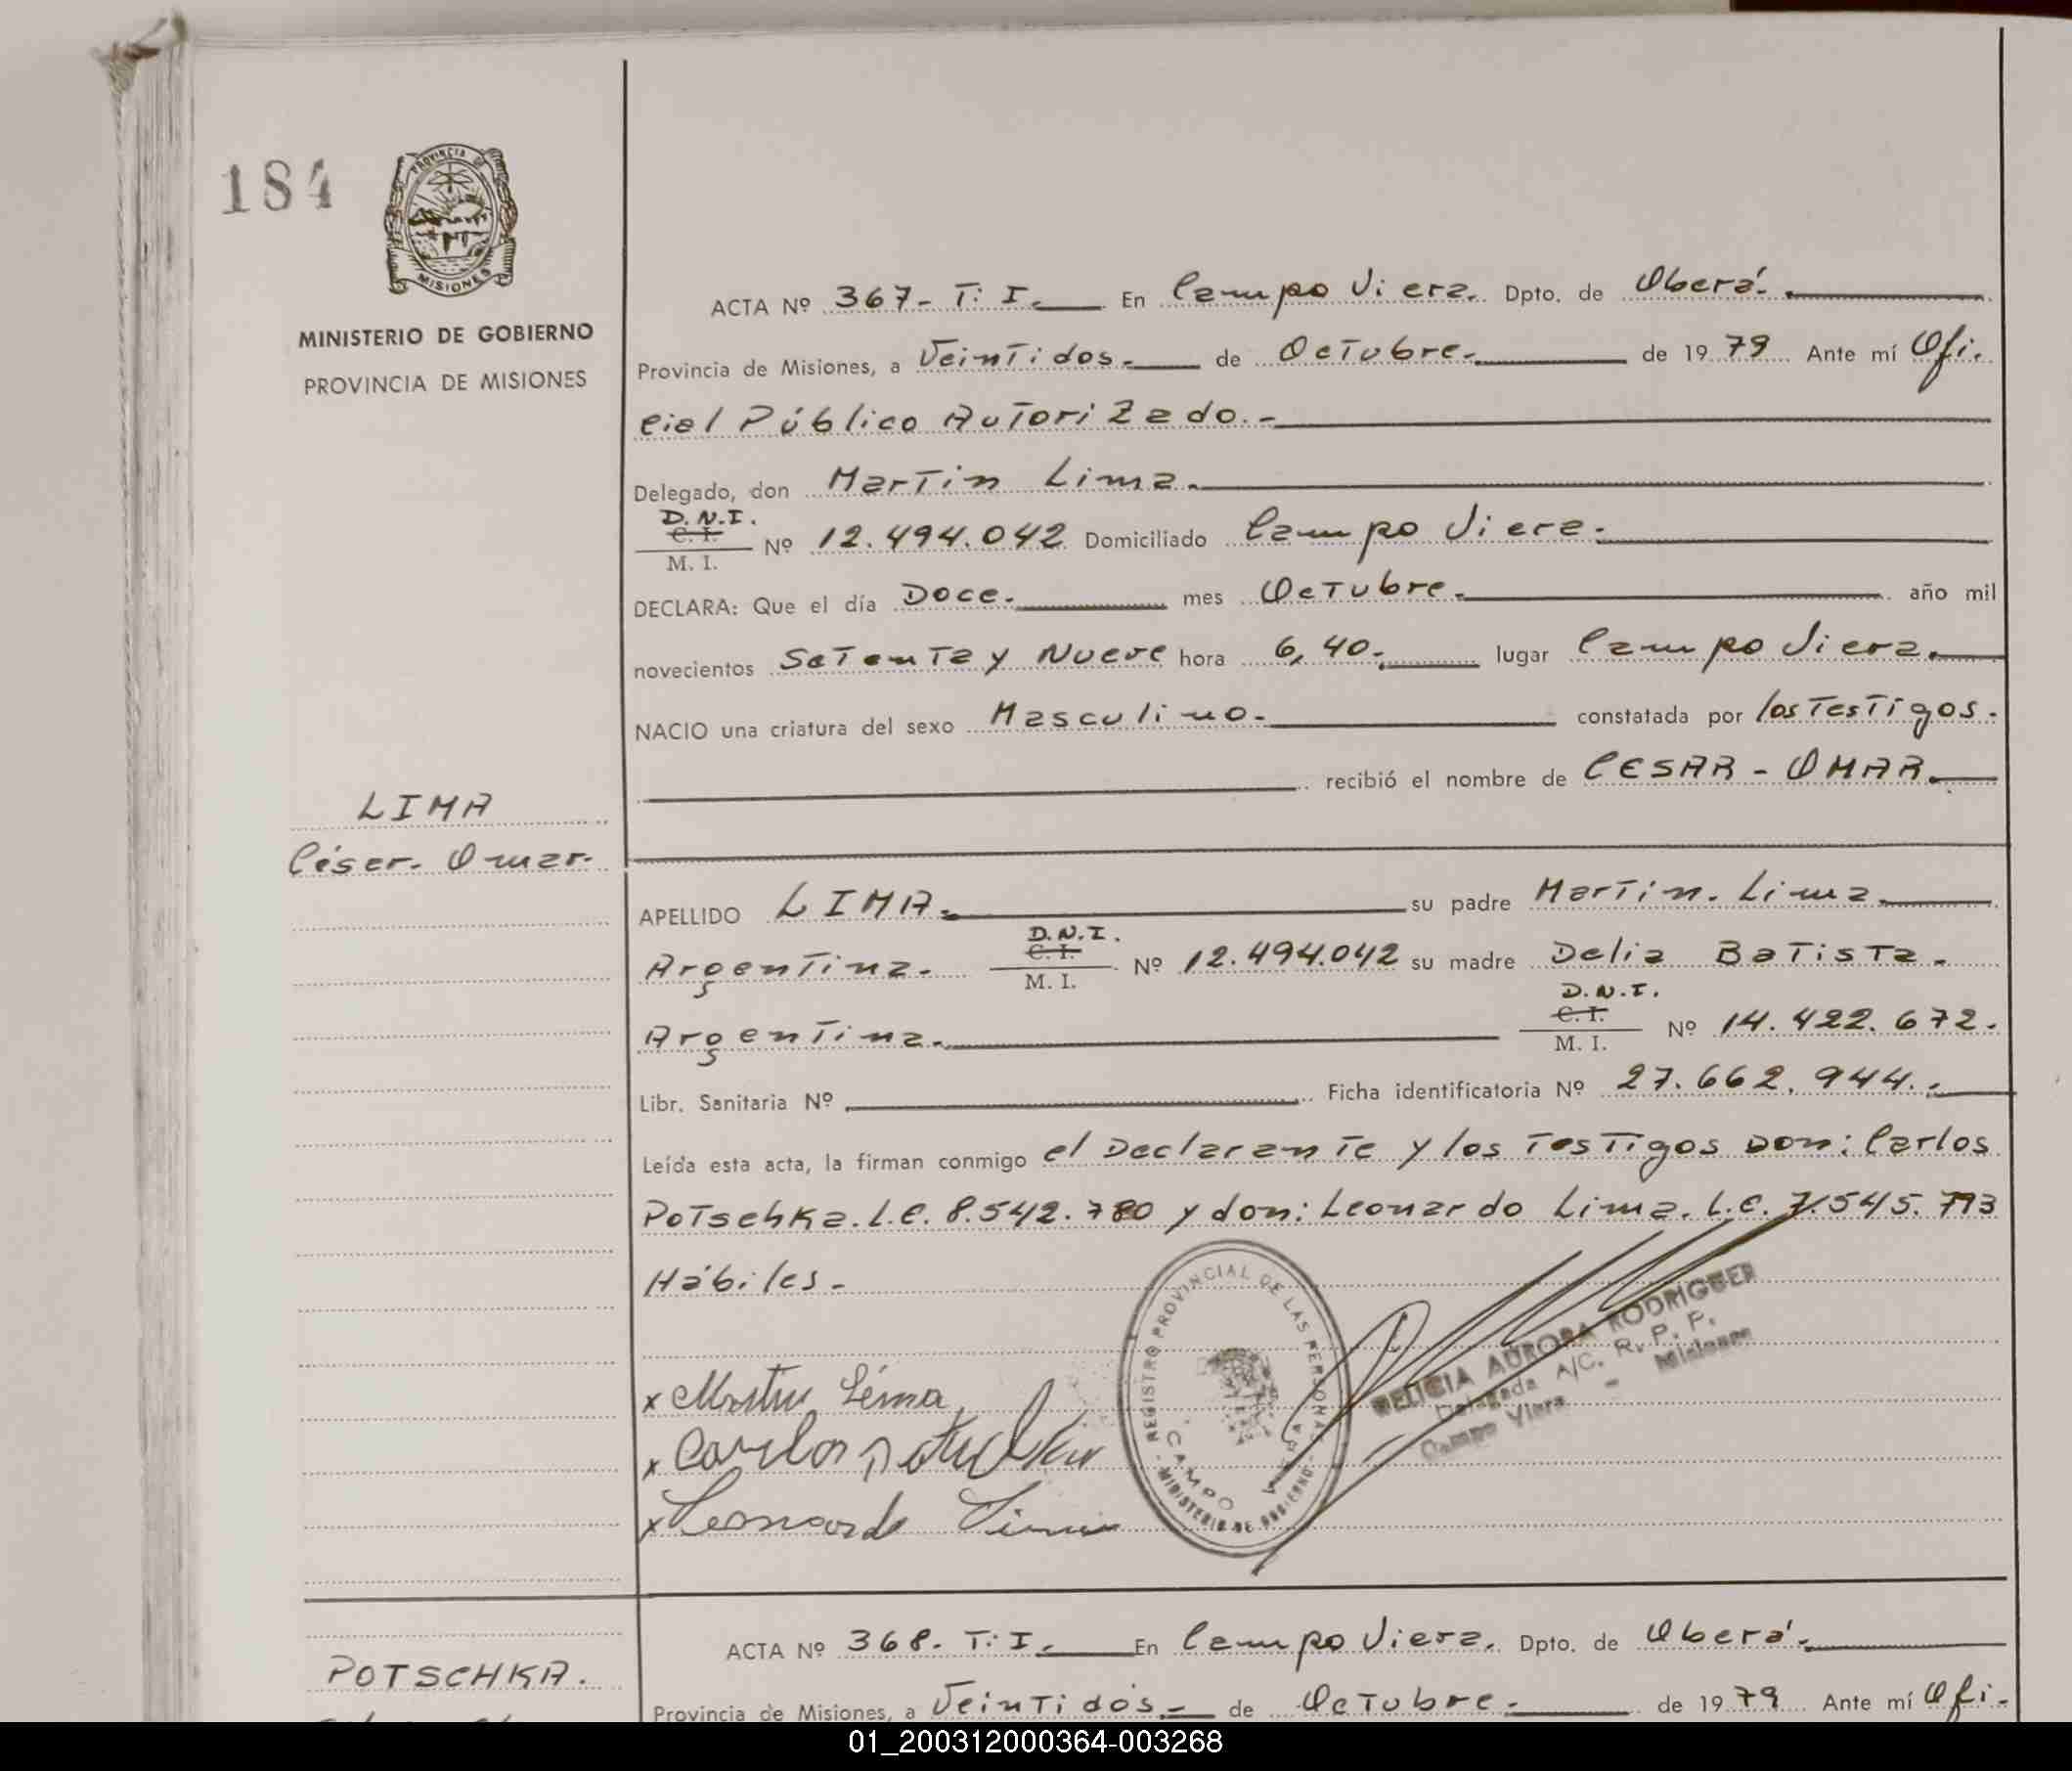 184
PROVINCIA DE
MISIONES
MINISTERIO DE GOBIERNO
PROVINCIA DE MISIONES
ACTA Nº 367- T: I. En Campo Viera. Dpto. de Oberá.
Provincia de Misiones, a Veintidos. de Octubre. de 1979 Ante mí Ofi.
cial Público Autorizado.-
Delegado, don Martin Lima.
D.N.I.
C. I.
M. I. Nº 12.494.042 Domiciliado Campo Viera.
DECLARA: Que el día Doce. mes Octubre. año mil
novecientos Setenta y Nueve hora 6,40. lugar Campo Viera.
NACIO una criatura del sexo Masculino. constatada por los Testigos.
recibió el nombre de CESAR - OMAR.
LIMA
César. Omar.
APELLIDO LIMA. su padre Martin. Lima.
D.N.I.
Argentina. C. I. Nº 12.494.042 su madre Delia Batista.
M. I.
D.N.I.
Argentina. C. I. Nº 14.422.672.
M. I.
Libr. Sanitaria Nº Ficha identificatoria Nº 27.662.944.
Leída esta acta, la firman conmigo el Declarante y los Testigos Don: Carlos
Potschka. L.E. 8.542.780 y don: Leonardo Lima. L.E. 7.545.793
Hábiles.
REGISTRO PROVINCIAL DE LAS PERSONAS
CAMPO VIERA
- MINISTERIO DE GOBIERNO -
AURORA RODRIGUER
Delegada A/C. R. P. P.
Campo Viera - Misiones
x Martin Lima
x Carlos Potschka
x Leonardo Lima
ACTA Nº 368. T: I. En Campo Viera. Dpto. de Oberá.
POTSCHKA.
Provincia de Misiones, a Veintidós. de Octubre. de 1979 Ante mí Ofi.
01_200312000364-003268